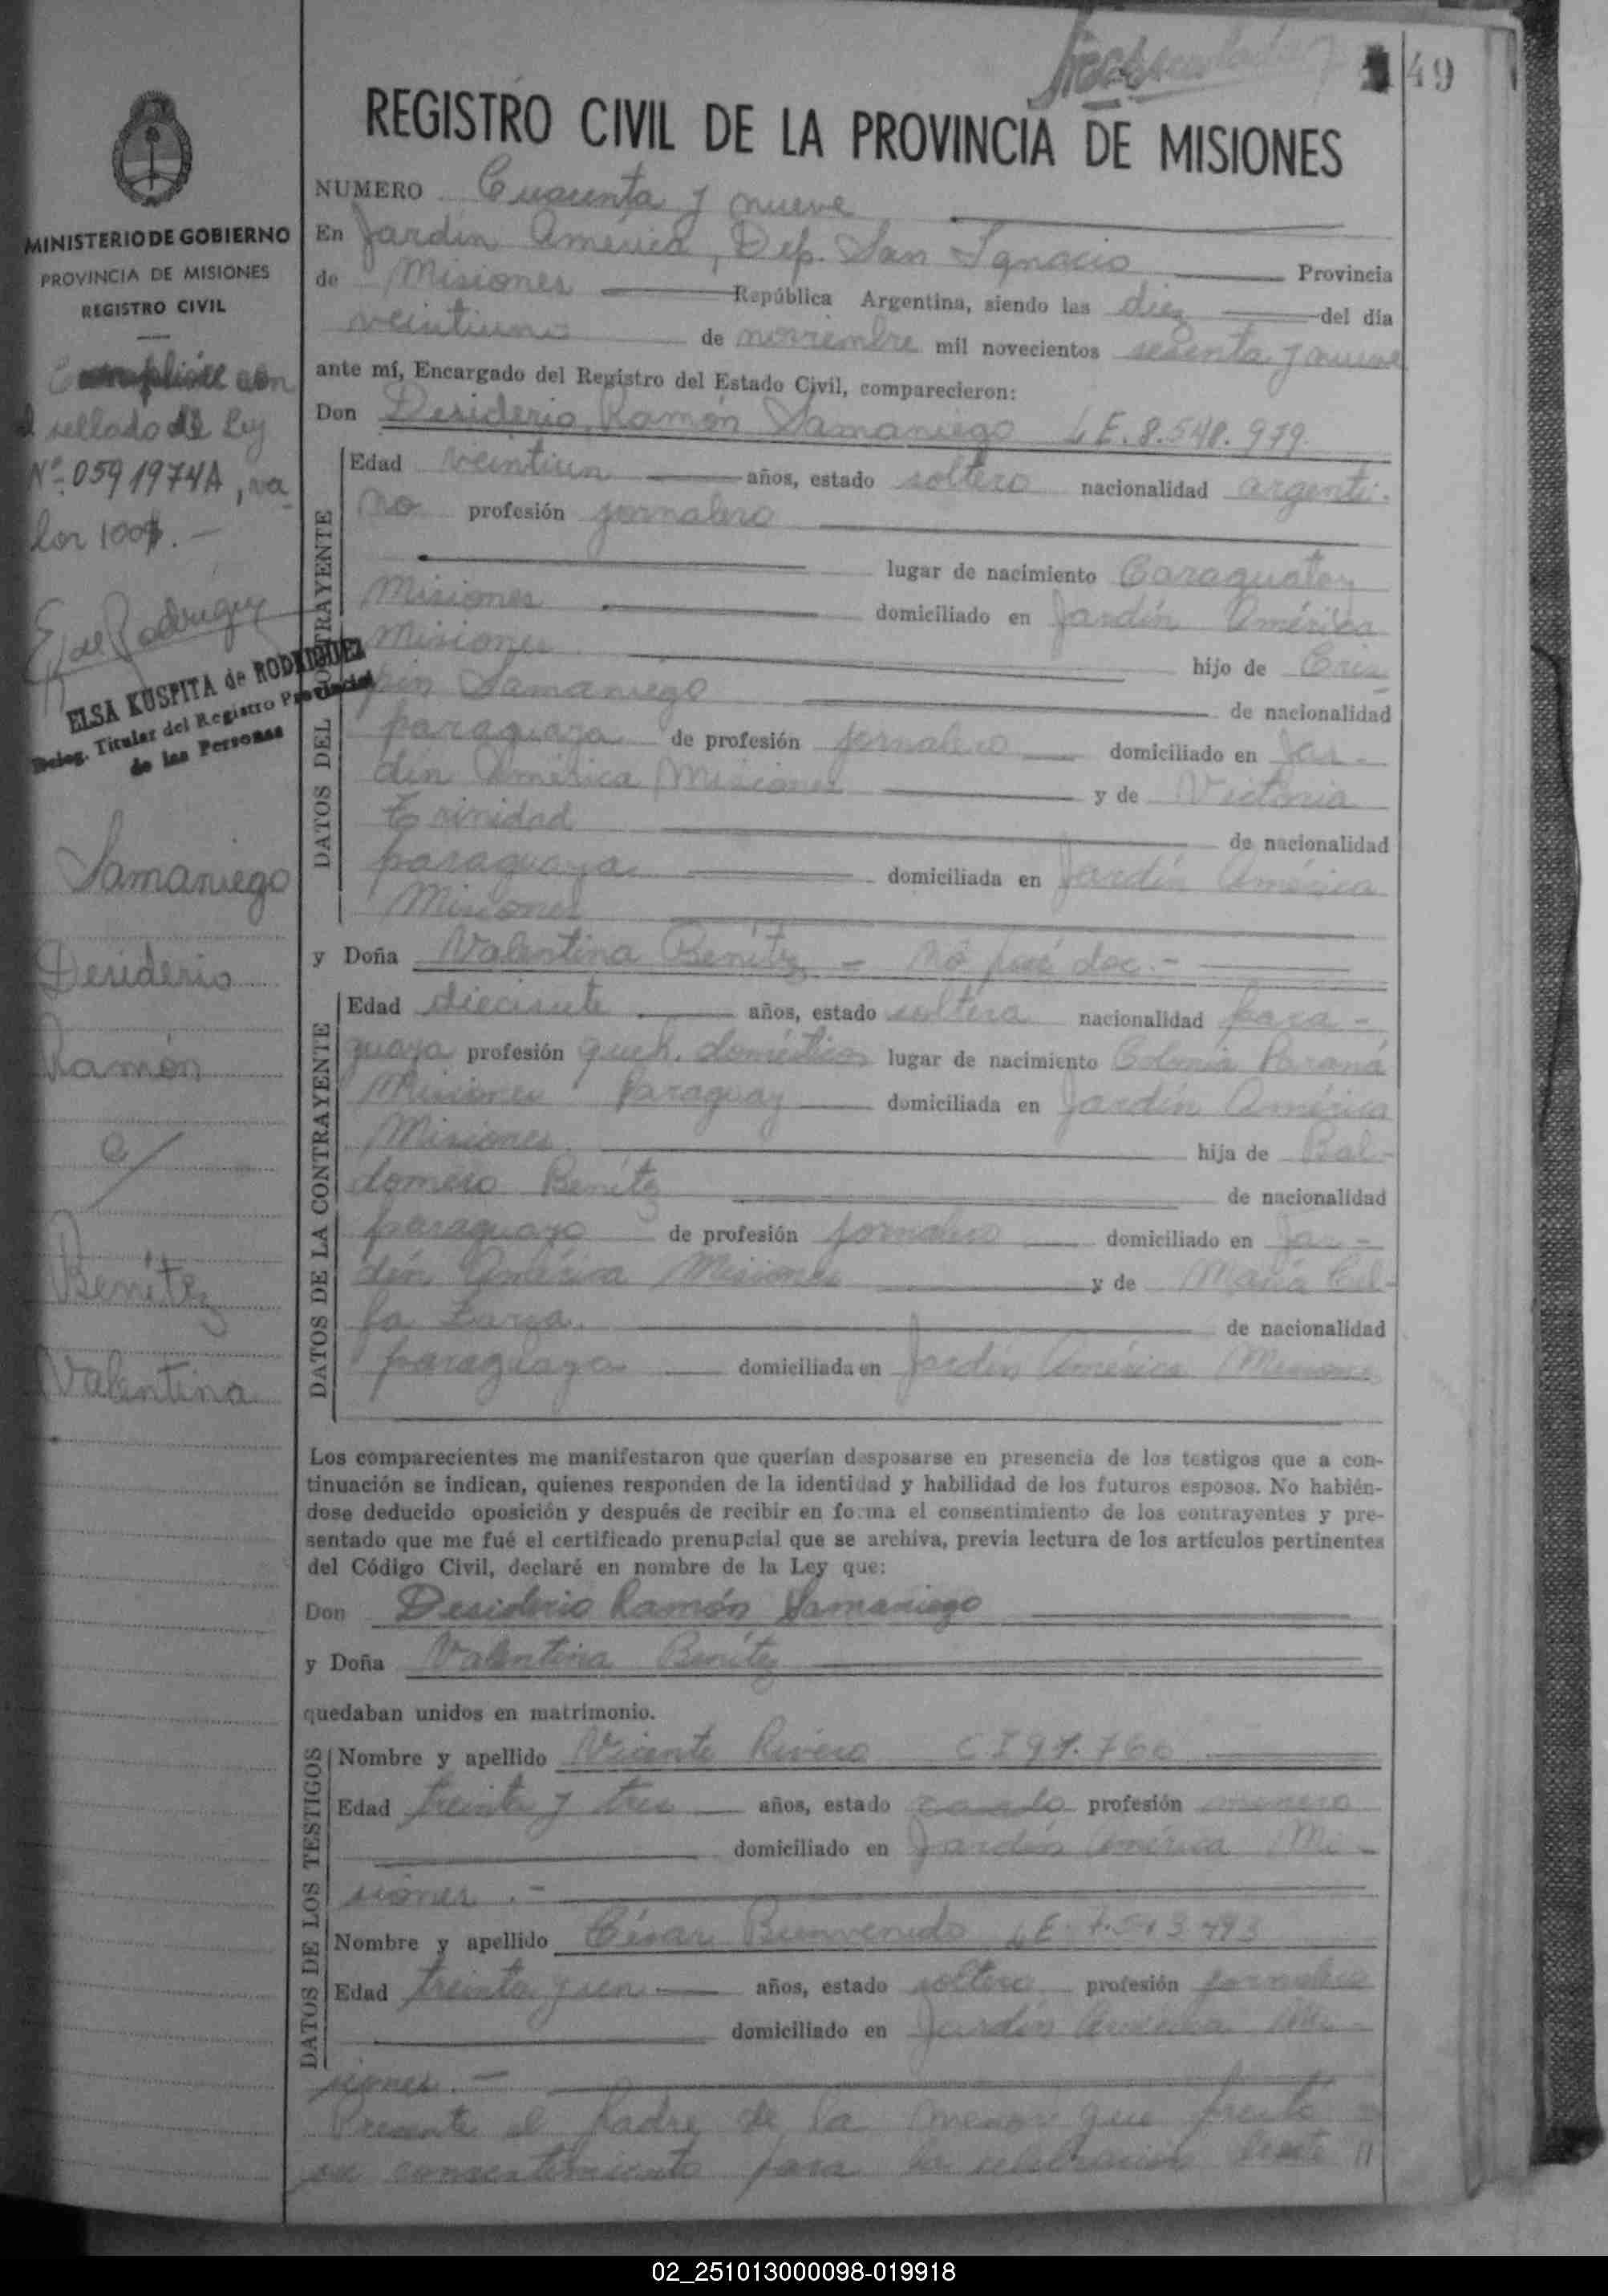 49
REGISTRO CIVIL DE LA PROVINCIA DE MISIONES
NUMERO Cuarenta y nueve
MINISTERIO DE GOBIERNO
PROVINCIA DE MISIONES
REGISTRO CIVIL
En Jardín América, Dep. San Ignacio Provincia
de Misiones República Argentina, siendo las diez del día
veintiuno de noviembre mil novecientos sesenta y nueve
ante mí, Encargado del Registro del Estado Civil, comparecieron:
con
el sellado de Ley
Nº 0591974A, va
lor 100$.-
E. de Rodriguez
ELSA KUSPITA de RODRIGUEZ
Deleg. Titular del Registro Provincial
de las Personas
Samaniego
Desiderio
Ramón
c/
Benítez
Valentina
Don Desiderio Ramón Samaniego L E. 8.548.979.
DATOS DEL CONTRAYENTE
Edad veintiun años, estado soltero nacionalidad argenti-
no profesión jornalero
lugar de nacimiento Caraguatay
Misiones domiciliado en Jardín América
Misiones hijo de Cris-
pin Samaniego de nacionalidad
paraguaya de profesión jornalero domiciliado en Jar-
dín América Misiones y de Victoria
Trinidad de nacionalidad
paraguaya domiciliada en Jardín América
Misiones
y Doña Valentina Benítez - No doc.-
DATOS DE LA CONTRAYENTE
Edad diecisiete años, estado soltera nacionalidad para-
guaya profesión queh. domésticos lugar de nacimiento Colonia Paraná
Misiones Paraguay domiciliada en Jardín América
Misiones hija de Bal-
domero Benítez de nacionalidad
paraguayo de profesión jornalero domiciliado en Jar-
dín América Misiones y de María
de nacionalidad
paraguaya domiciliada en Jardín América Misiones
Los comparecientes me manifestaron que querían desposarse en presencia de los testigos que a con-
tinuación se indican, quienes responden de la identidad y habilidad de los futuros esposos. No habién-
dose deducido oposición y después de recibir en forma el consentimiento de los contrayentes y pre-
sentado que me fué el certificado prenupcial que se archiva, previa lectura de los artículos pertinentes
del Código Civil, declaré en nombre de la Ley que:
Don Desiderio Ramón Samaniego
y Doña Valentina Benítez
quedaban unidos en matrimonio.
DATOS DE LOS TESTIGOS
Nombre y apellido Vicente Rivero C I 97.760
Edad treinta y tres años, estado profesión
domiciliado en Jardín América Mi-
siones.-
Nombre y apellido César Bienvenido L E. 7.513.493
Edad treinta y un años, estado soltero profesión jornalero
domiciliado en Jardín América Mi-
siones.-
Presente el Padre de la menor que prestó
su consentimiento para la celebración
02_251013000098-019918